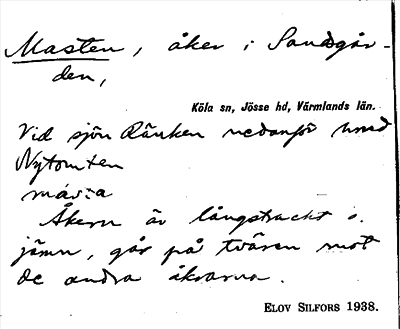 Masten, åker i Sandsgår-
den,
Köla sn, Jösse hd, Värmlands län.
Vid sjön Ränken nedanför
Nytomten

Åkern är långstrackt o.
jämn, går på tvären mot
de andra åkrarna.
ELOV SILFORS 1938.